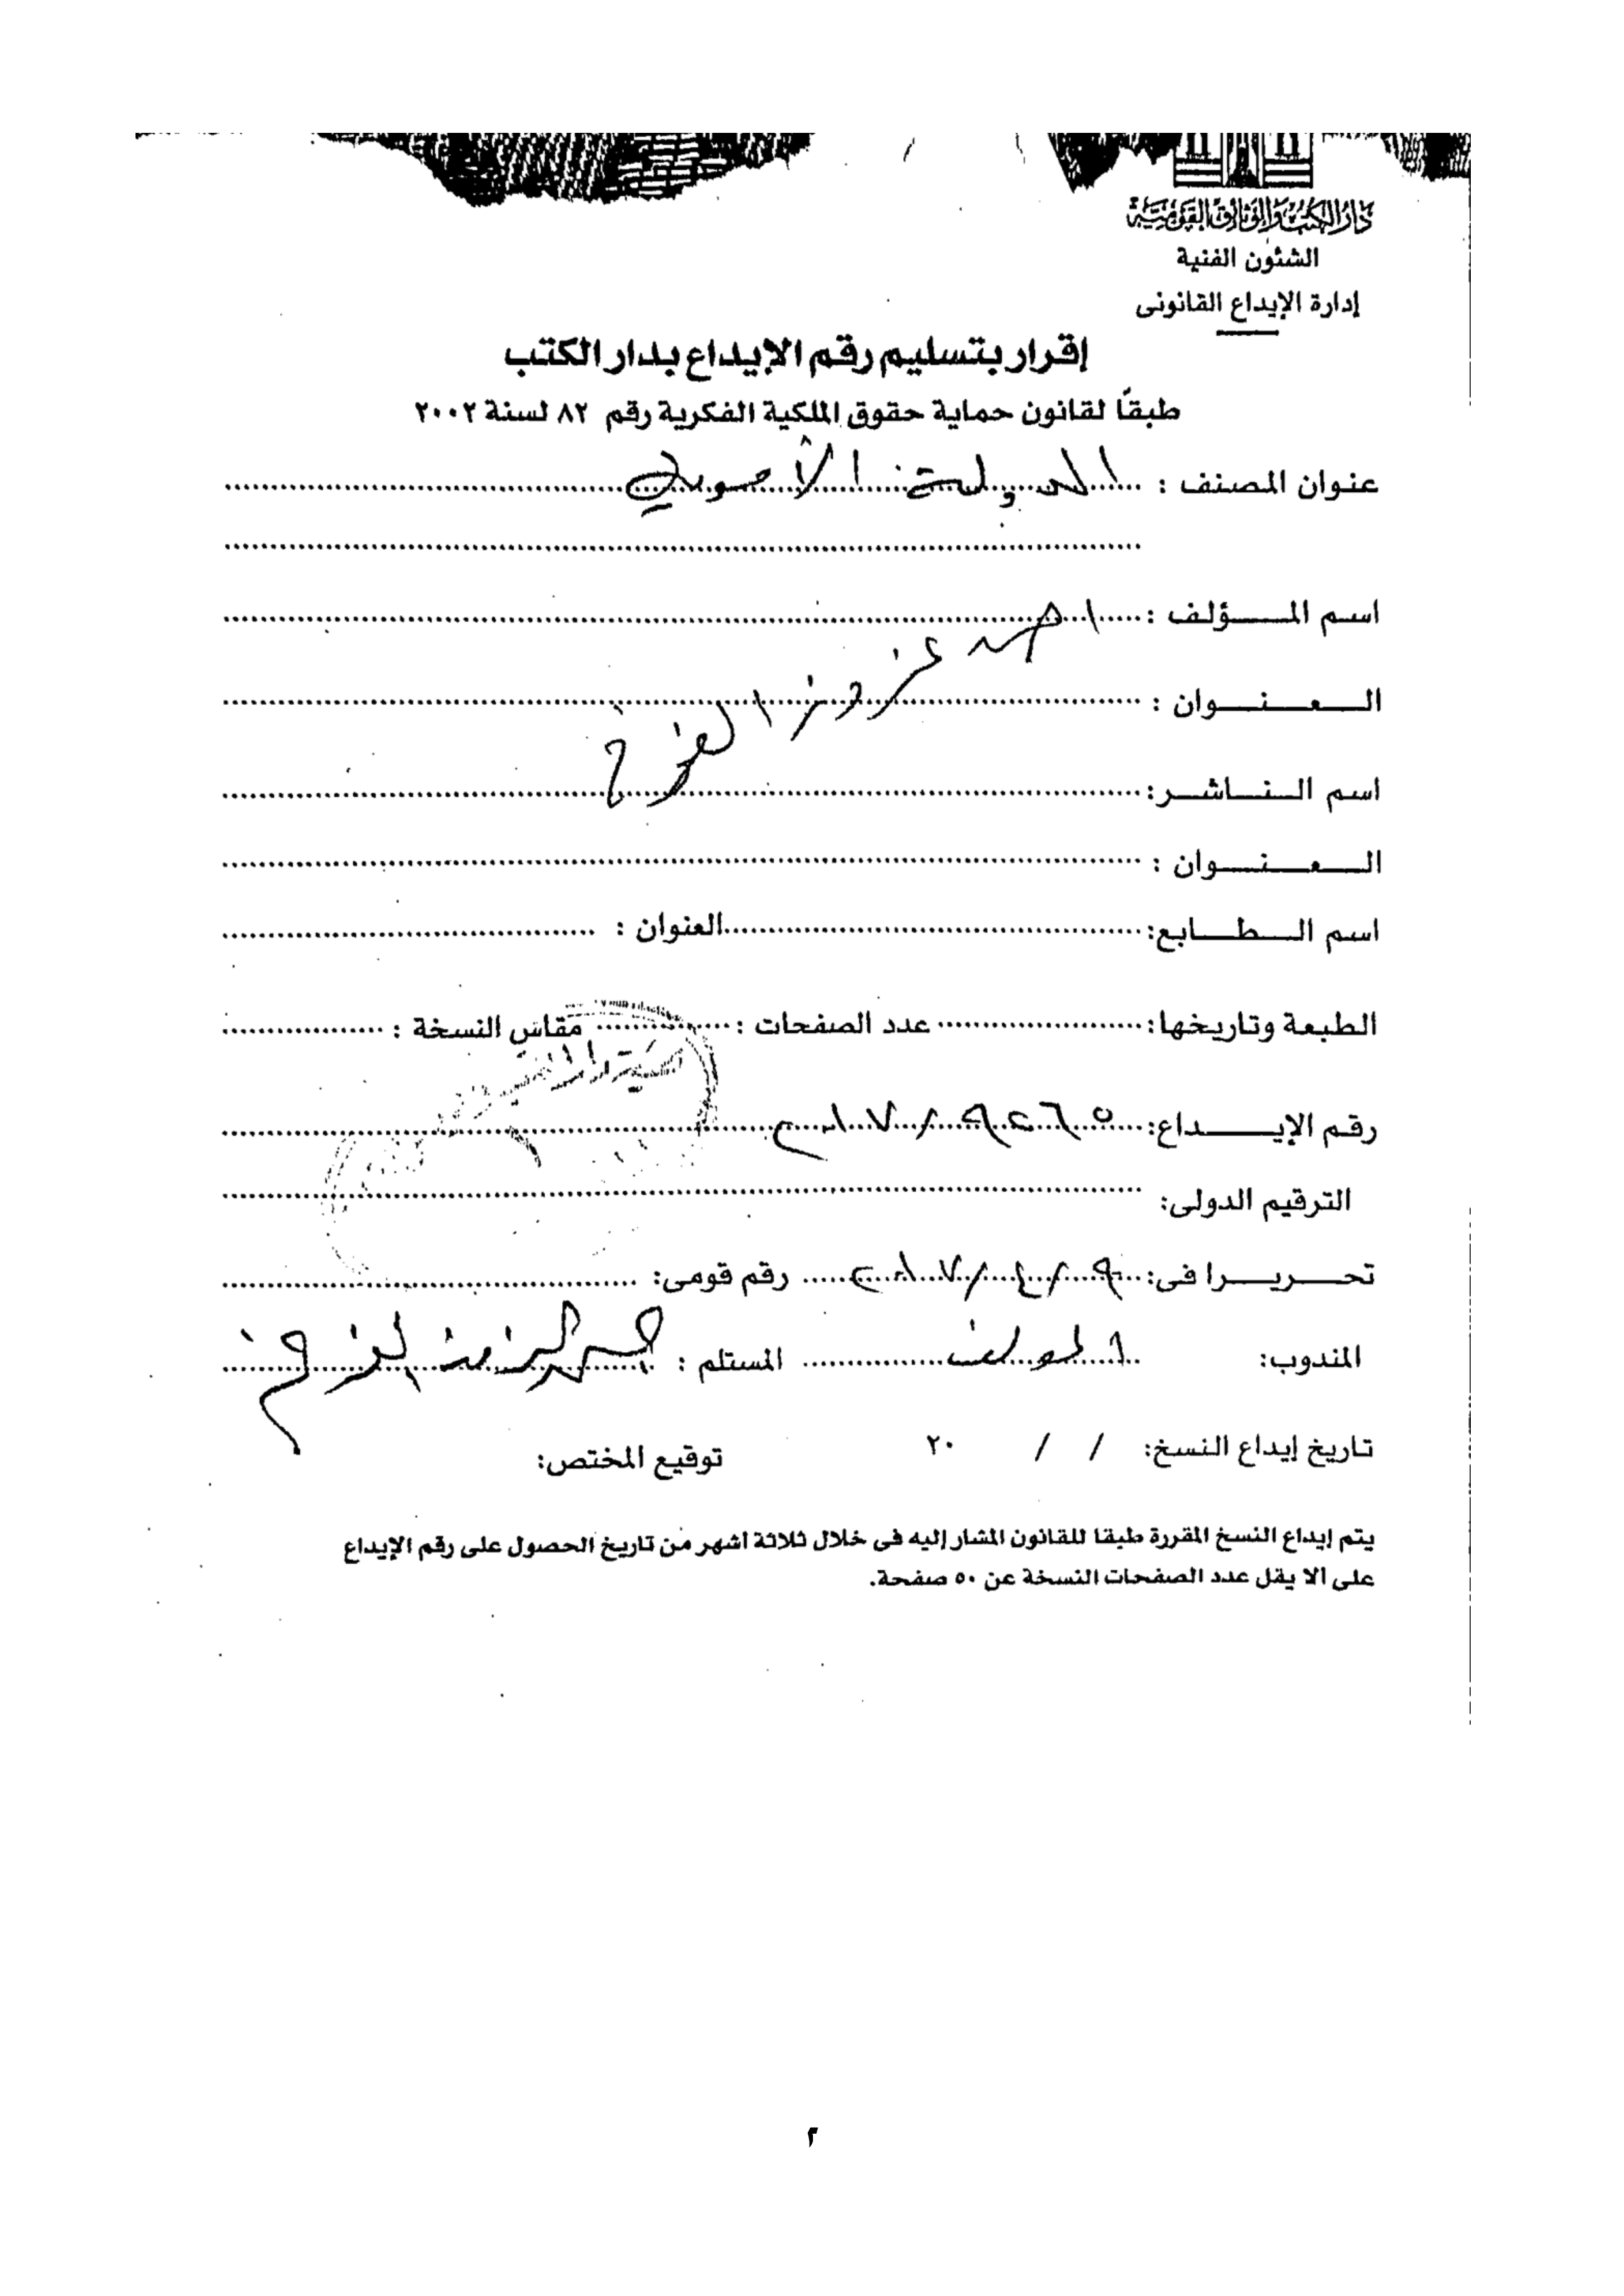 دار الكتب والوثائق القومية
الشئون الفنية
إدارة الإيداع القانونى
إقرار بتسليم رقم الإيداع بدار الكتب
طبقًا لقانون حماية حقوق الملكية الفكرية رقم ٨٢ لسنة ٢٠٠٢
عنوان المصنف : الدولة الأموية
اسم المؤلف : احمد عزوز الفرخ
العنوان :
اسم الناشر:
العنوان :
اسم الطابع: العنوان :
الطبعة وتاريخها: عدد الصفحات : مقاس النسخة :
رقم الإيداع: ٩٢٦٥ / ٢٠١٧
الترقيم الدولى:
تحريرا فى: ٩ / ٤ / ٢٠١٧ رقم قومى:
المندوب: المؤلف المستلم :
تاريخ إيداع النسخ: / / ٢٠ توقيع المختص:
يتم إيداع النسخ المقررة طبقا للقانون المشار إليه فى خلال ثلاثة اشهر من تاريخ الحصول على رقم الإيداع
على الا يقل عدد الصفحات النسخة عن ٥٠ صفحة.
٢